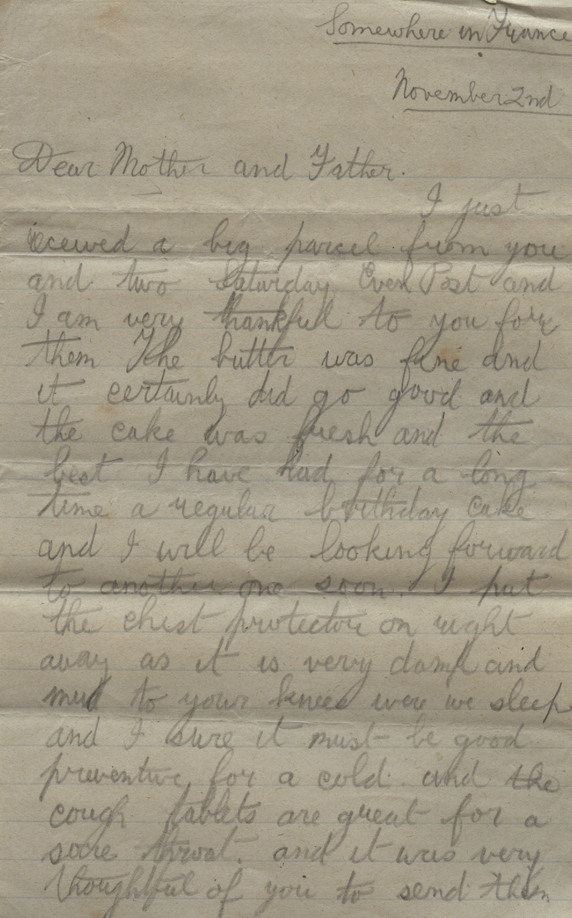 Somewhere in France
November 2nd
Dear Mother and Father.
I just
received a big parcel from you
and two Saturday Even Post and
I am very thankful to you fore
them The butter was fine and
it certainly did go good and
the cake was fresh and the
best I have had for a long
time a regular birthday cake
and I will be looking forward
to another one soon. I put
the chest protector on right
away as it is very damp and
mud to your knees were we sleep
and I sure it must be good
preventive for a cold. and the
cough tablets are great for a
sore throat. and it was very
thoughtful of you to send them